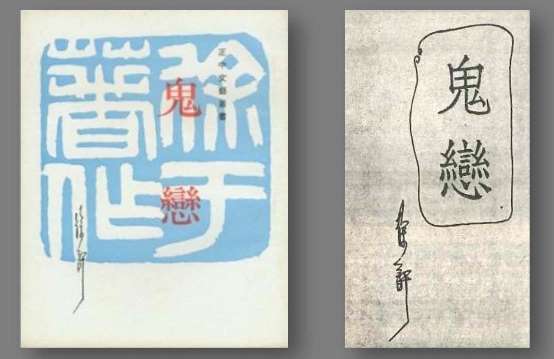 正中文藝叢書
鬼戀
徐于
著作
徐訏
鬼戀
徐訏